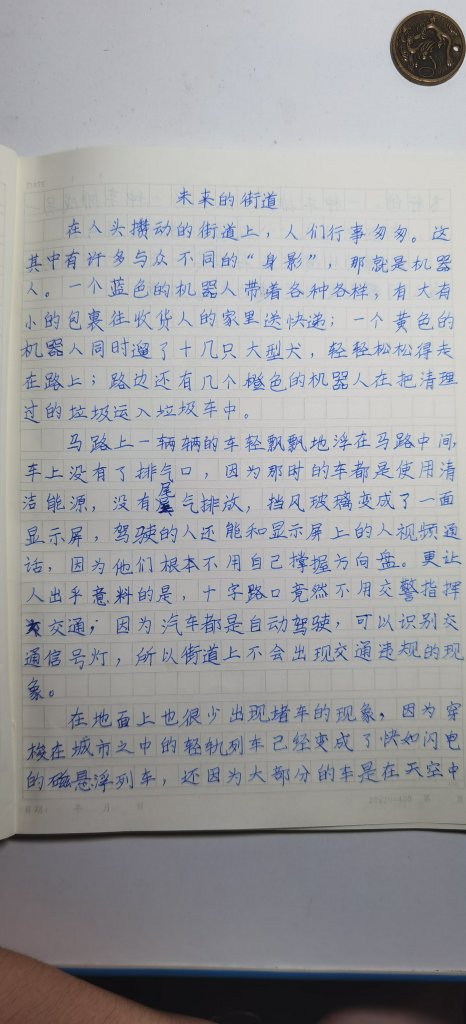 未来的街道
在人头攒动的街道上，人们行事匆匆。这
其中有许多与众不同的“身影”，那就是机器
人。一个蓝色的机器人带着各种各样，有大有
小的包裹往收货人的家里送快递；一个黄色的
机器人同时遛了十几只大型犬，轻轻松松得走
在路上；路边还有几个橙色的机器人在把清理
过的垃圾运入垃圾车中。
马路上一辆辆的车轻飘飘地浮在马路中间，
车上没有了排气口，因为那时的车都是使用清
洁能源，没有尾气排放，挡风玻璃变成了一面
显示屏，驾驶的人还能和显示屏上的人视频通
话，因为他们根本不用自己撑握方向盘。更让
人出乎意料的是，十字路口竟然不用交警指挥
交通，因为汽车都是自动驾驶，可以识别交
通信号灯，所以街道上不会出现交通违规的现
象。
在地面上也很少出现堵车的现象，因为穿
梭在城市之中的轻轨列车已经变成了快如闪电
的磁悬浮列车，还因为大部分的车是在天空中